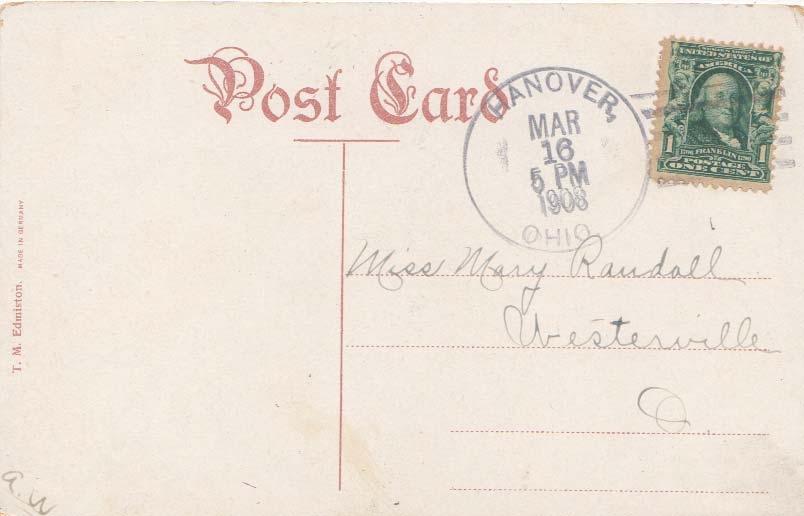 Post Card
HANOVER,
MAR
16
5 PM
1908
OHIO
UNITED STATES OF
AMERICA
1790 FRANKLIN 1790
1 POSTAGE 1
ONE CENT
Miss Mary Randall
Westerville
O.
T. M. Edmiston. MADE IN GERMANY
a.w